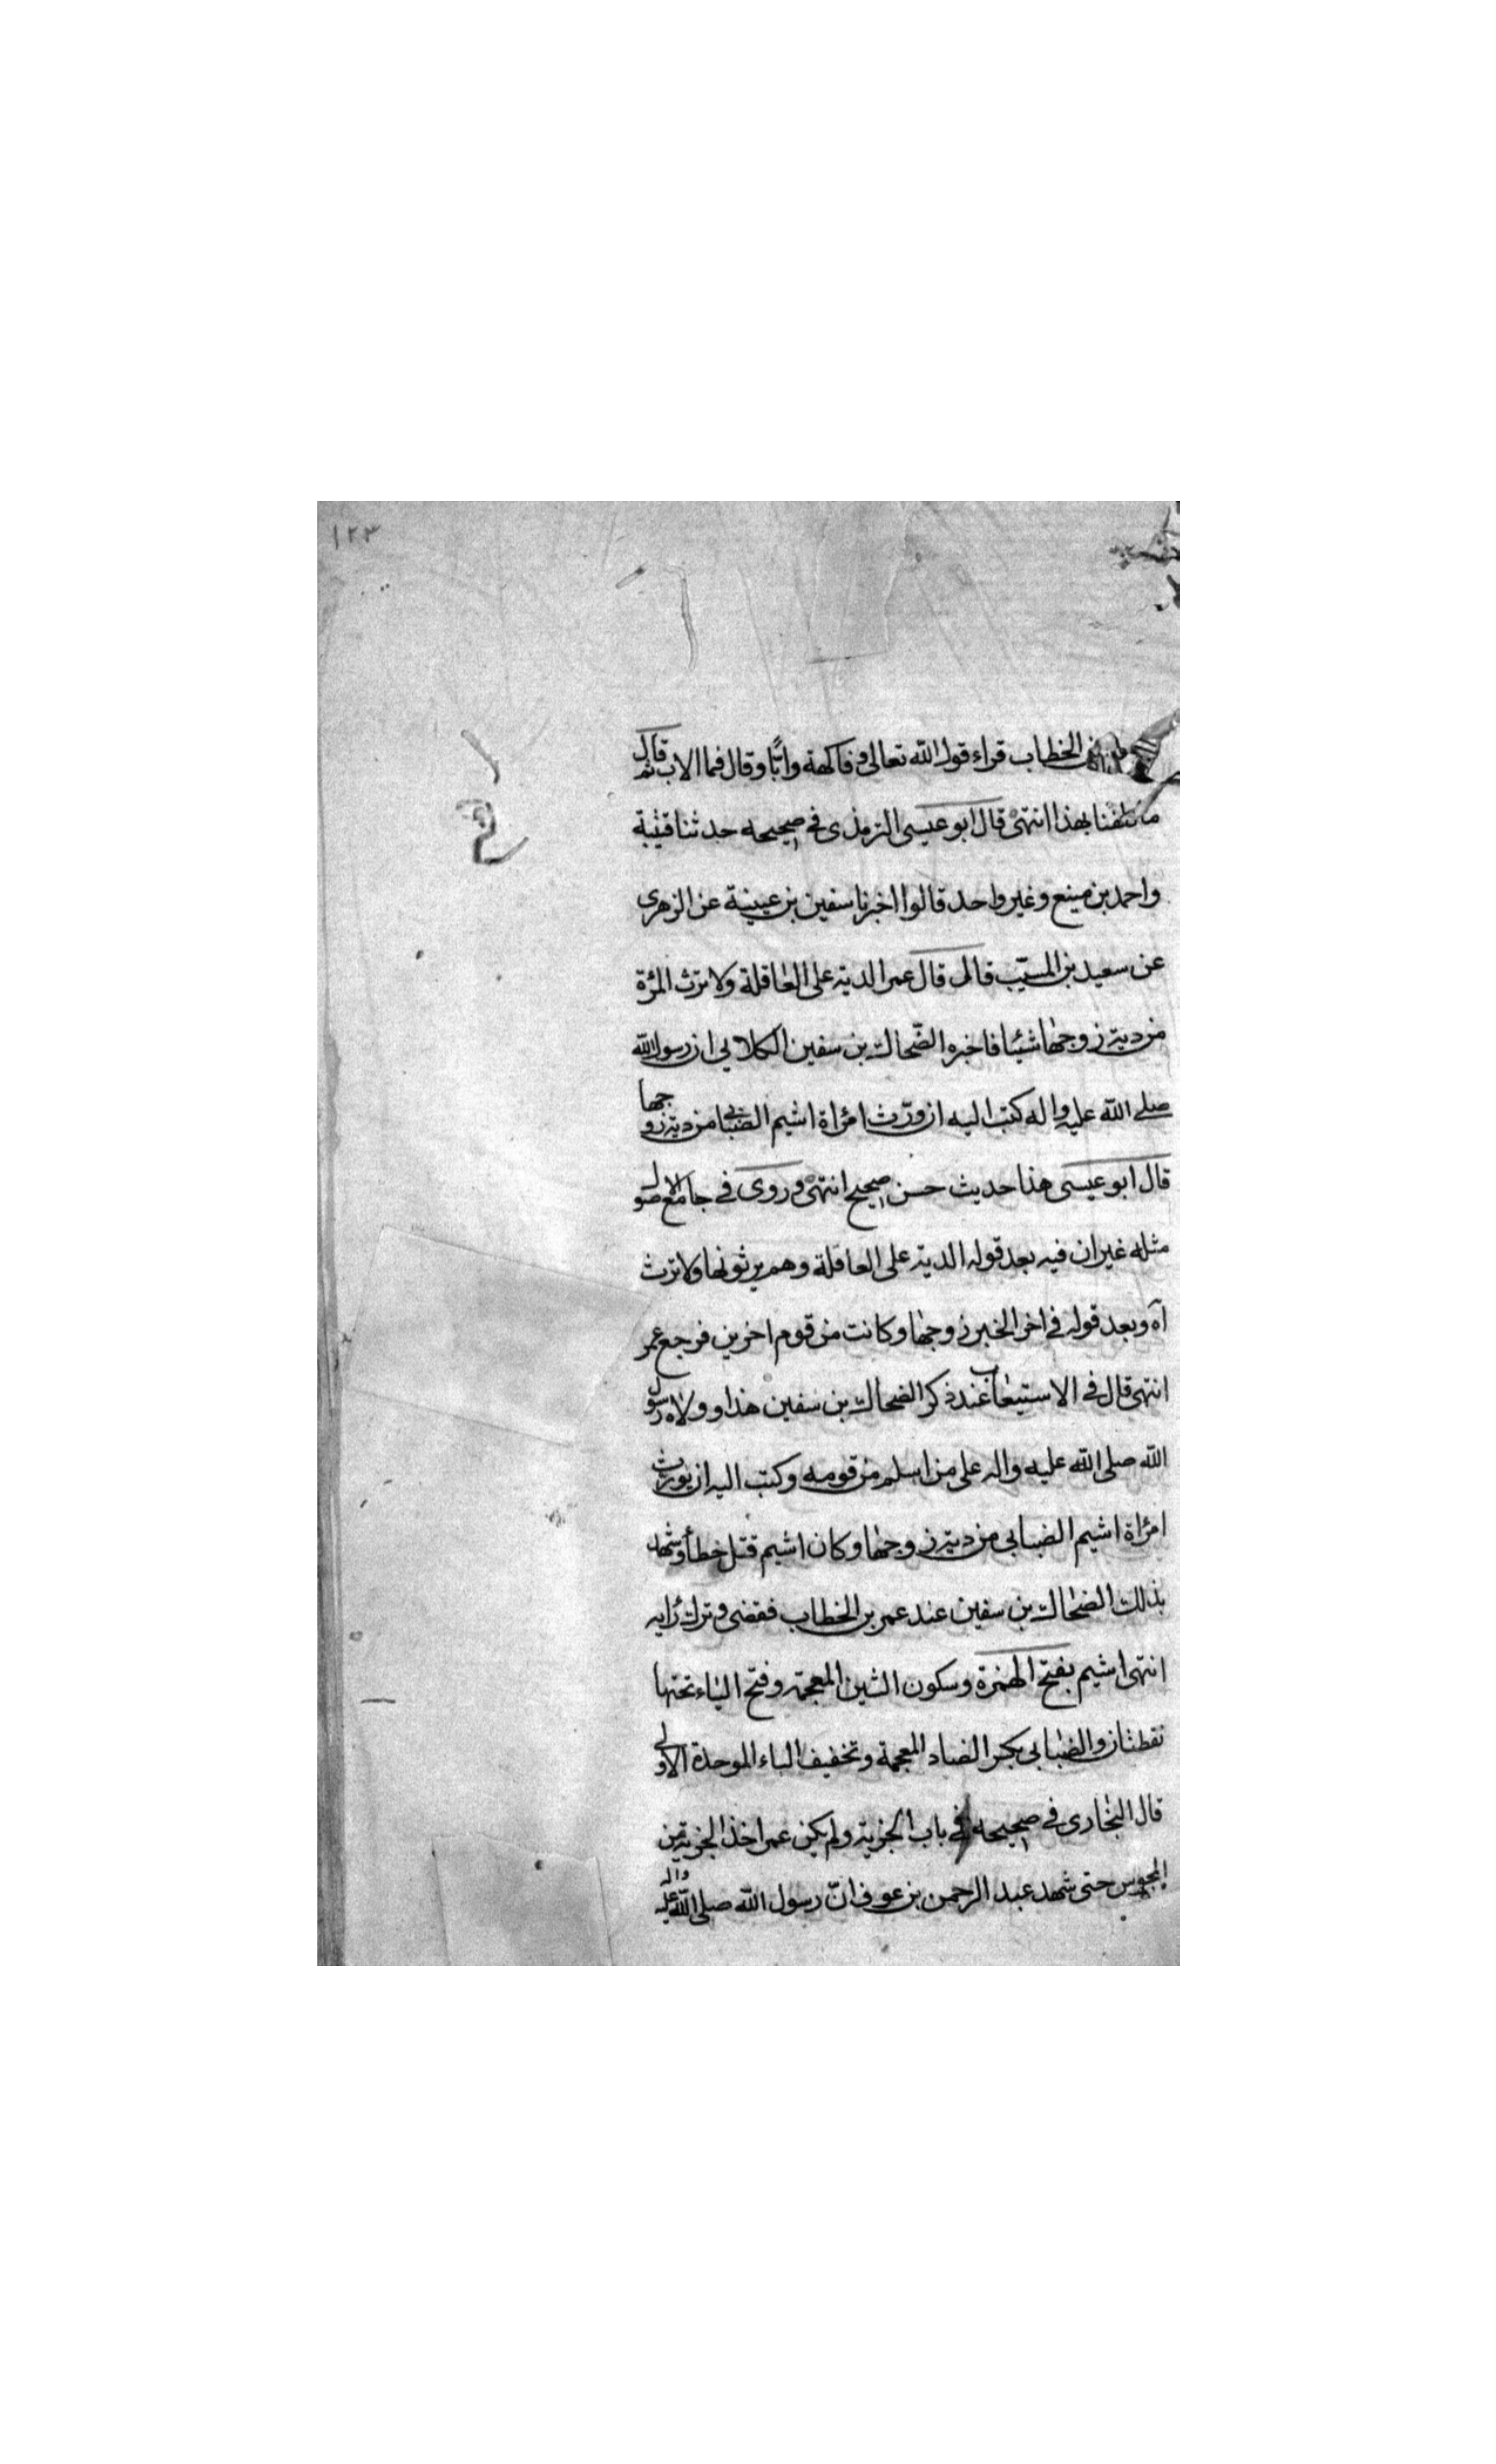 ١٢٣
بن الخطاب قراء قول الله تعالى وفاكهة وابًّا وقال فما الاب ثم قال
ما كلفنا بهذا انتهى قال ابو عيسى الترمذى فى صحيحه حدثنا قتيبة
واحمد بن منيع وغير واحد قالوا اخبرنا سفين بن عيينة عن الزهرى
عن سعيد بن المسيّب قال قال عمر الدية على العاقلة ولا ترث المرءة
من دية زوجها شيئا فاخبره الضّحاك بن سفين الكلابي ان رسول الله
صلى الله عليه واله كتب اليه ان ورّث امرأة اشيم الضبابي من دية زوجها
قال ابو عيسى هذا حديث حسن صحيح انتهى وروى فى جامع الاصول
مثله غير ان فيه بعد قوله الدية على العاقلة وهم يرثونها ولا ترث
آه وبعد قوله فى اخر الخبر زوجها وكانت من قوم اخرين فرجع عمر
انتهى قال فى الاستيعاب عند ذكر الضحاك بن سفين هذا وولاه رسول
الله صلى الله عليه واله على من اسلم من قومه وكتب اليه ان يورث
امرأة اشيم الضبابي من دية زوجها وكان اشيم قتل خطأ وشهد
بذلك الضحاك بن سفين عند عمر بن الخطاب فقضى وترك رايه
انتهى اشيم بفتح الهمزة وسكون الشين المعجمة وفتح الياء تحتها
نقطتان والضبابي بكسر الضاد المعجمة وتخفيف الباء الموحدة الاولى
قال البخارى فى صحيحه فى باب الجزية ولم يكن عمر اخذ الجزية من
المجوس حتى شهد عبد الرحمن بن عوف انّ رسول الله صلى الله عليه واله